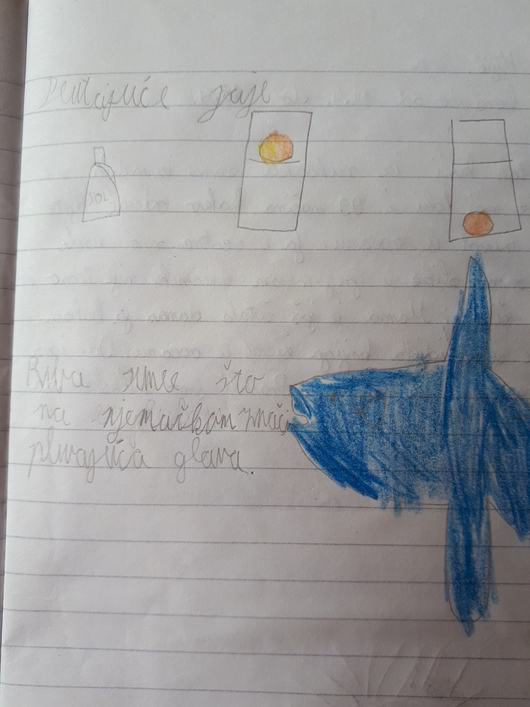 Plutajuće jaje
SOL
Riba što
na njemačkom znači
plivajuća glava.